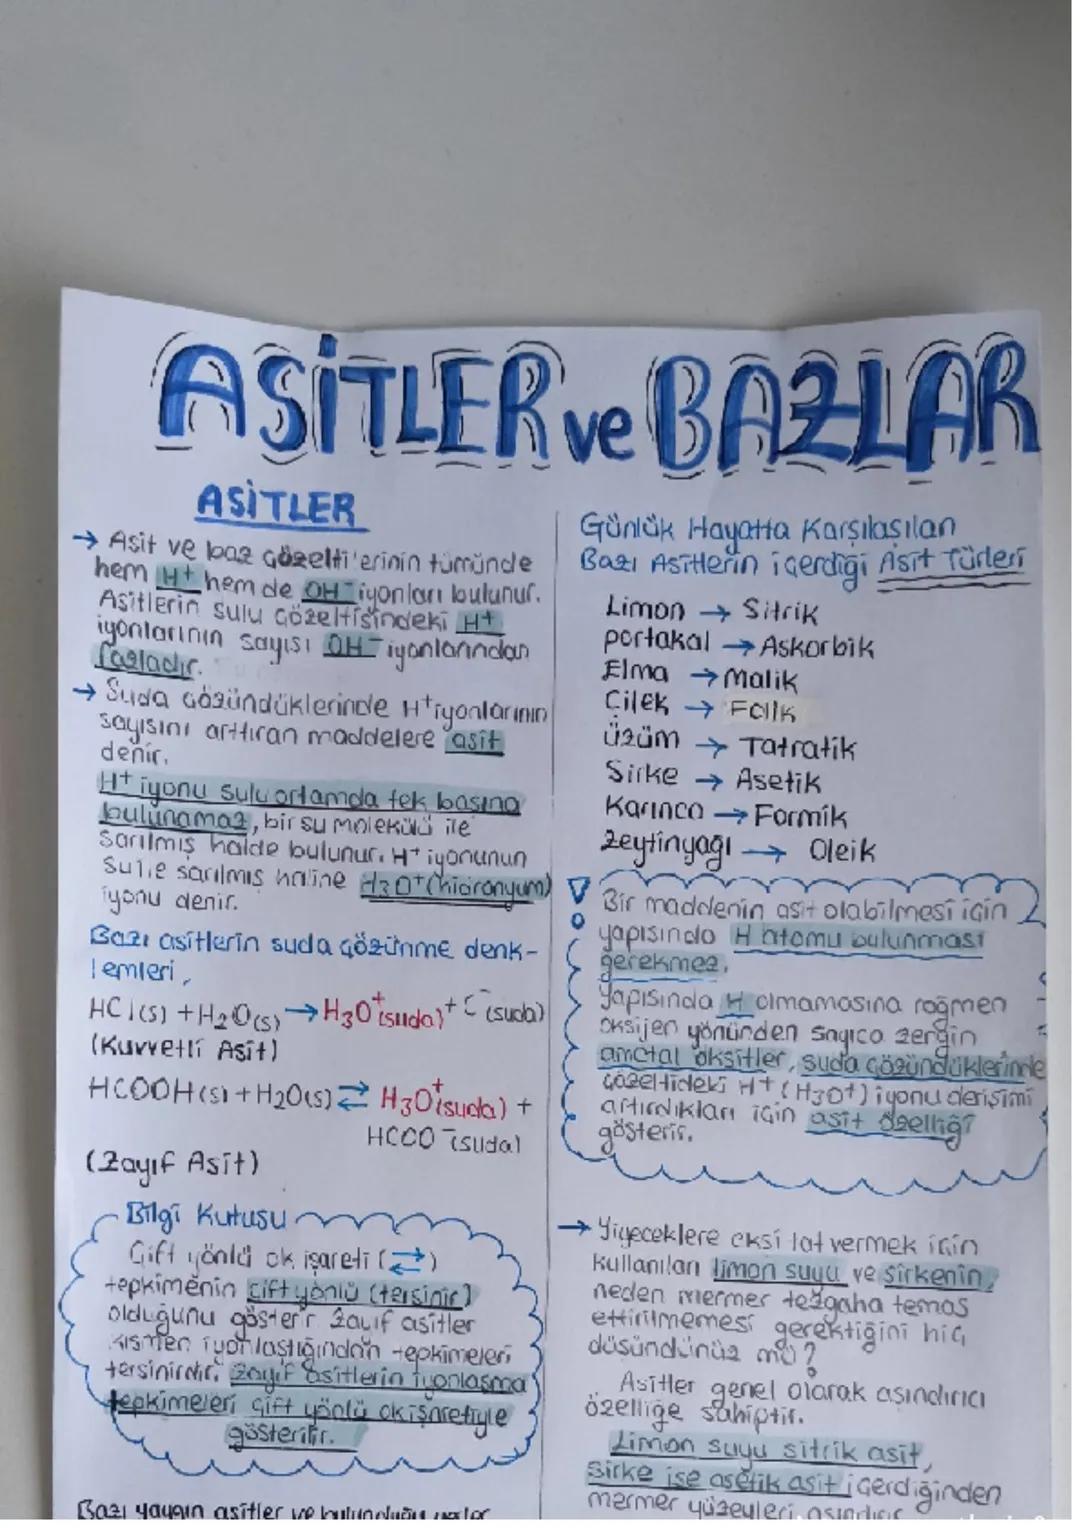 ASİTLER ve BAZLAR
ASİTLER
→ Asit ve baz çözelti'erinin tümünde
hem H+ hem de OH- iyonları bulunur.
Asitlerin sulu çözeltisindeki H+
iyonlarının sayısı OH- iyonlarından
fazladır.
→ Suda çözündüklerinde H+ iyonlarının
sayısını arttıran maddelere asit
denir.
H+ iyonu sulu ortamda tek başına
bulunamaz, bir su molekülü ile
sarılmış halde bulunur. H+ iyonunun
su ile sarılmış haline H3O+ (hidronyum)
iyonu denir.
Bazı asitlerin suda çözünme denk-
lemleri,
HCl(s) + H2O(s) → H3O+(suda) + C-(suda)
(Kuvvetli Asit)
HCOOH(s) + H2O(s) ⇄ H3O+(suda) +
HCOO-(suda)
(Zayıf Asit)
Bilgi Kutusu
Çift yönlü ok işareti (⇄)
tepkimenin çift yönlü (tersinir)
olduğunu gösterir zayıf asitler
kısmen iyonlaştığından tepkimeleri
tersinirdir. Zayıf asitlerin iyonlaşma
tepkimeleri çift yönlü ok işaretiyle
gösterilir.
Bazı yaygın asitler ve bulunduğu yerler
Günlük Hayatta Karşılaşılan
Bazı Asitlerin içerdiği Asit Türleri
Limon → Sitrik
portakal → Askorbik
Elma → Malik
Çilek → Folik
Üzüm → Tatratik
Sirke → Asetik
Karınca → Formik
Zeytinyağı → Oleik
Bir maddenin asit olabilmesi için
yapısında H atomu bulunması
gerekmez.
Yapısında H olmamasına rağmen
oksijen yönünden sayıca zengin
ametal oksitler, suda çözündüklerinde
çözeltideki H+ (H3O+) iyonu derişimi
artırdıkları için asit özelliği
gösterir.
→ Yiyeceklere ekşi tat vermek için
kullanılan limon suyu ve sirkenin,
neden mermer tezgaha temas
ettirilmemesi gerektiğini hiç
düşündünüz mü?
Asitler genel olarak aşındırıcı
özelliğe sahiptir.
Limon suyu sitrik asit,
sirke ise asetik asit içerdiğinden
mermer yüzeyleri aşındırır